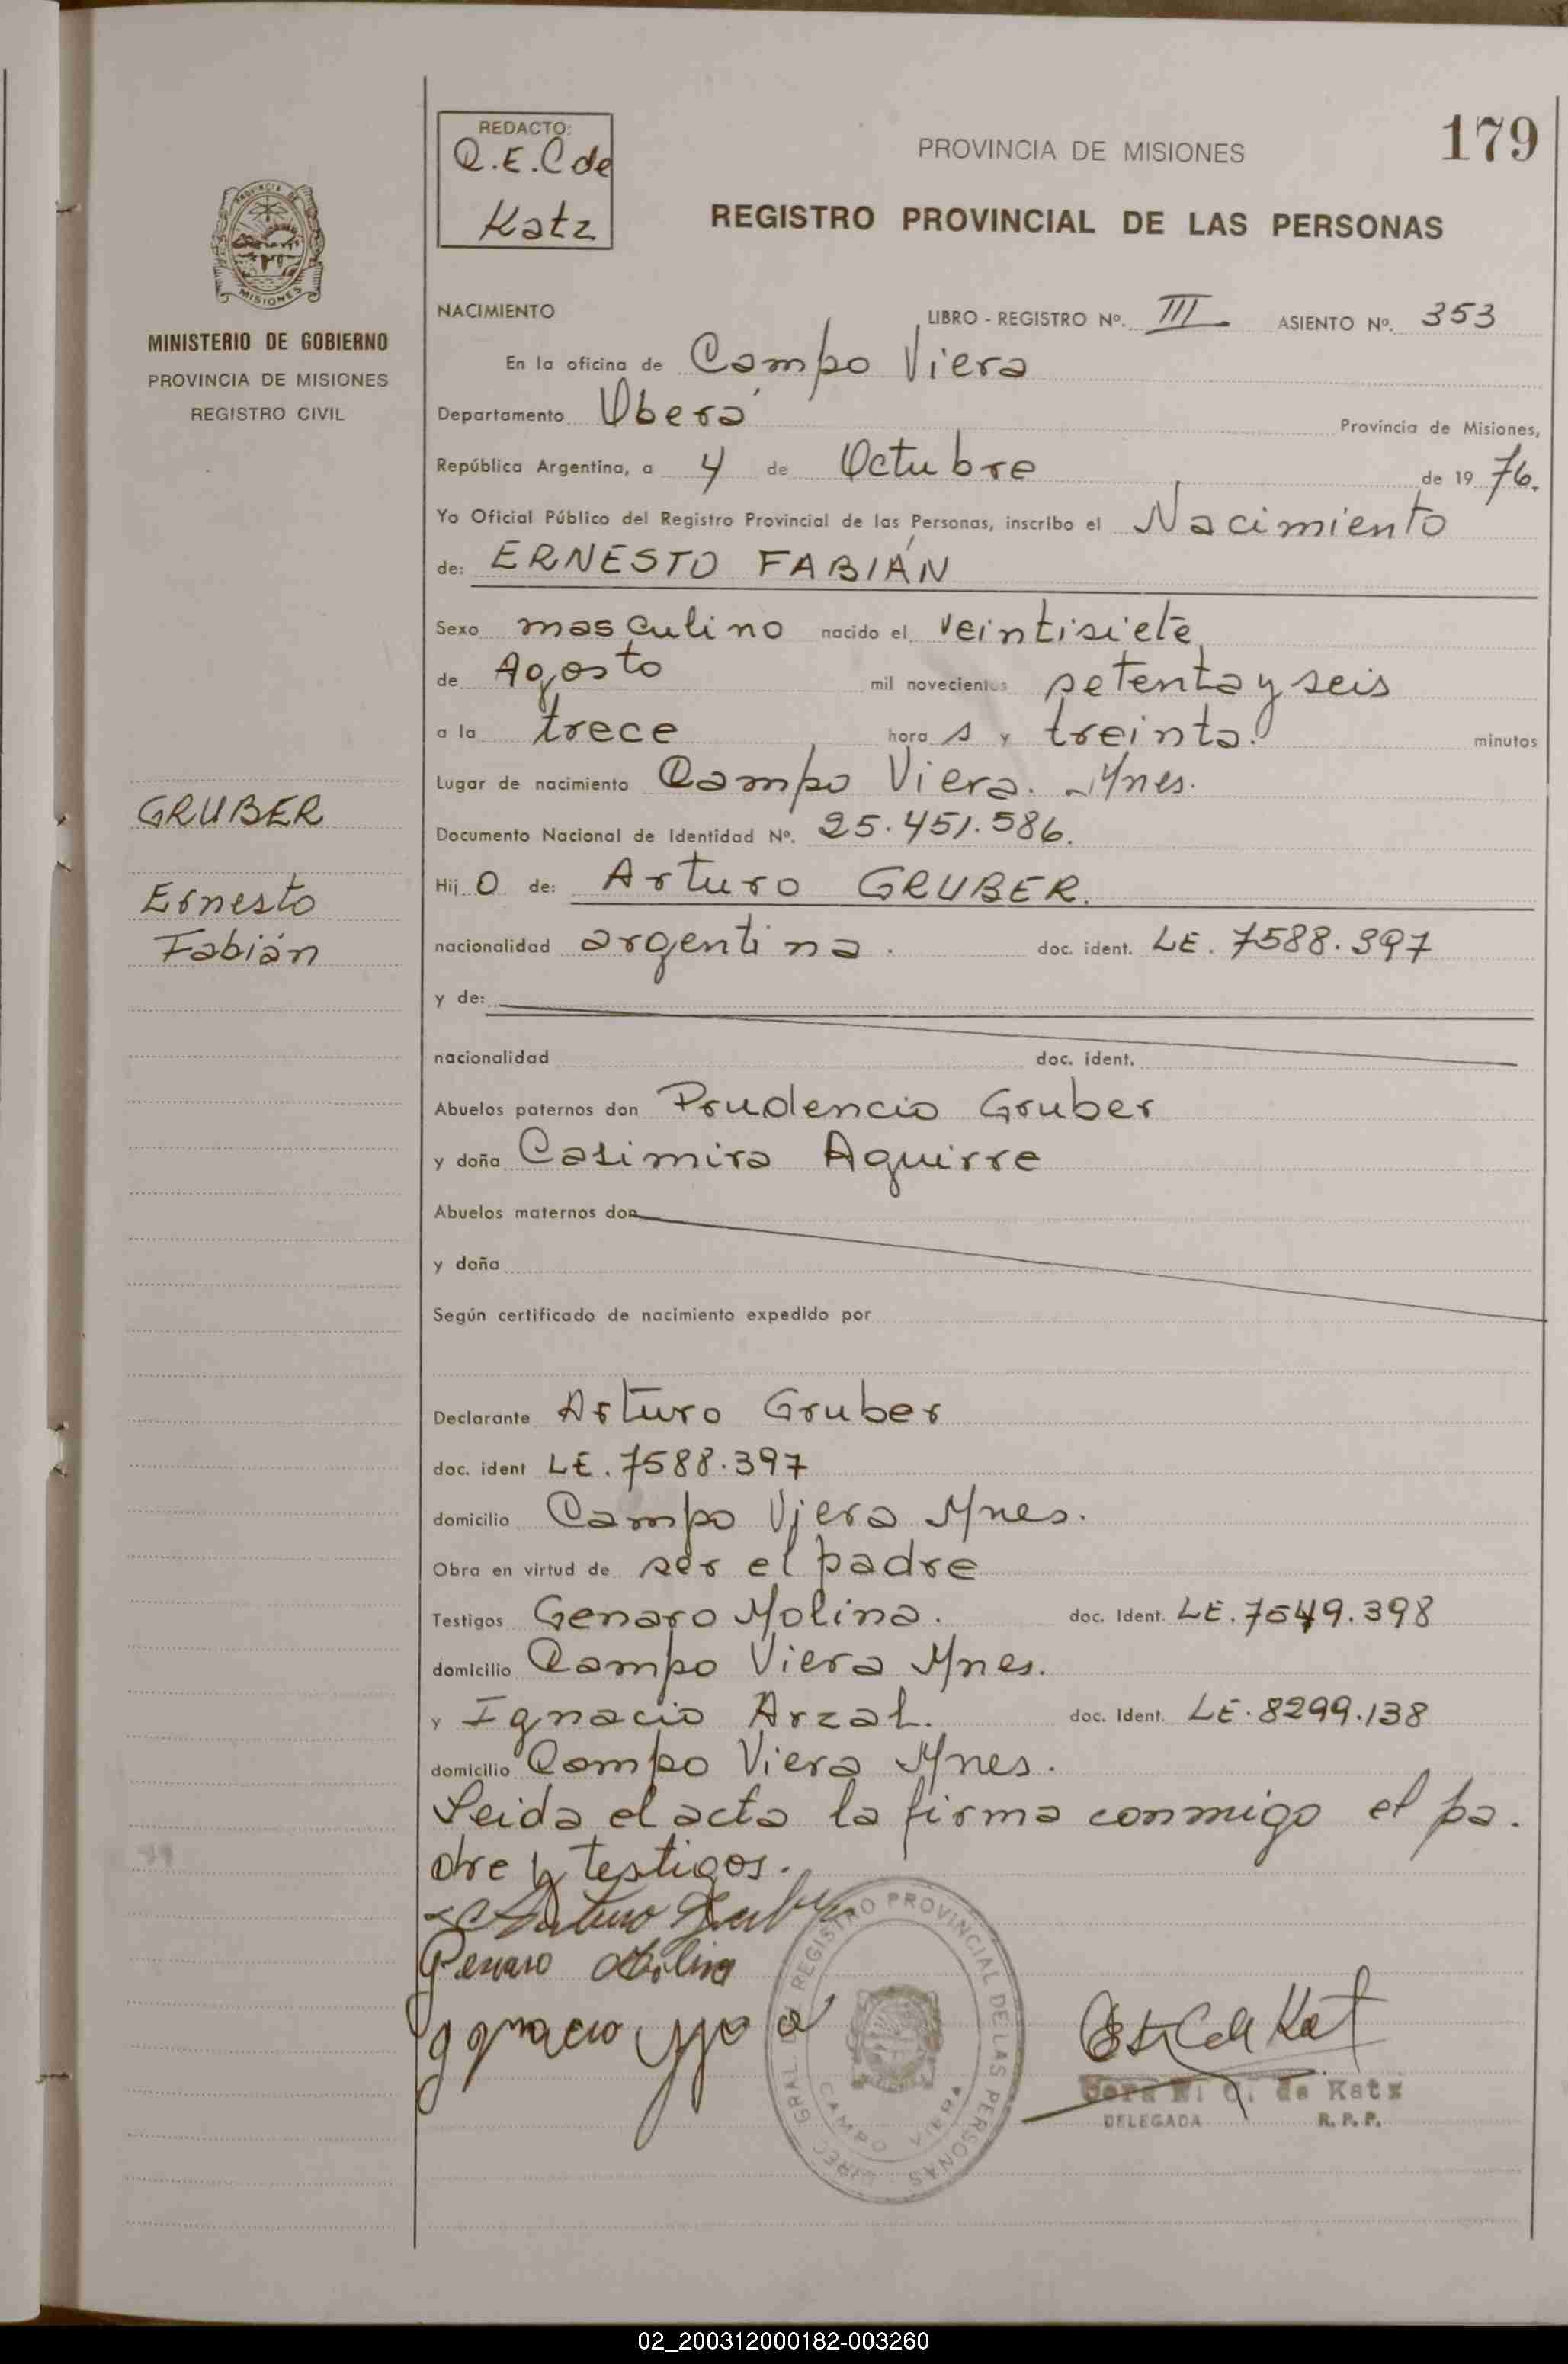 REDACTO:
Q.E.C de
Katz
PROVINCIA DE MISIONES
179
REGISTRO PROVINCIAL DE LAS PERSONAS
MISIONES
MINISTERIO DE GOBIERNO
PROVINCIA DE MISIONES
REGISTRO CIVIL
NACIMIENTO
LIBRO - REGISTRO Nº. III ASIENTO Nº. 353
En la oficina de Campo Viera
Departamento Oberá Provincia de Misiones,
República Argentina, a 4 de Octubre de 1976.
Yo Oficial Público del Registro Provincial de las Personas, inscribo el Nacimiento
de: ERNESTO FABIÁN
Sexo masculino nacido el veintisiete
de Agosto mil novecientos setenta y seis
a la trece horas y treinta. minutos
Lugar de nacimiento Campo Viera. Mnes.
GRUBER
Documento Nacional de Identidad Nº. 25.451.586.
Hijo de: Arturo GRUBER.
Ernesto
Fabián
nacionalidad argentina. doc. ident. LE. 7588.397
y de:
nacionalidad doc. ident.
Abuelos paternos don Prudencio Gruber
y doña Casimira Aguirre
Abuelos maternos don
y doña
Según certificado de nacimiento expedido por
Declarante Arturo Gruber
doc. ident LE. 7588.397
domicilio Campo Viera Mnes.
Obra en virtud de ser el padre
Testigos Genaro Molina. doc. Ident. LE. 7549.398
domicilio Campo Viera Mnes.
y Ignacio Arzal. doc. Ident. LE. 8299.138
domicilio Campo Viera Mnes.
Leida el acta la firma conmigo el pa.
dre y testigos.
Arturo Gruber
Genaro Molina
Ignacio
DIREC. GRAL. DEL REGISTRO PROVINCIAL DE LAS PERSONAS
CAMPO VIERA
de Katz
DELEGADA R. P. P.
02_200312000182-003260